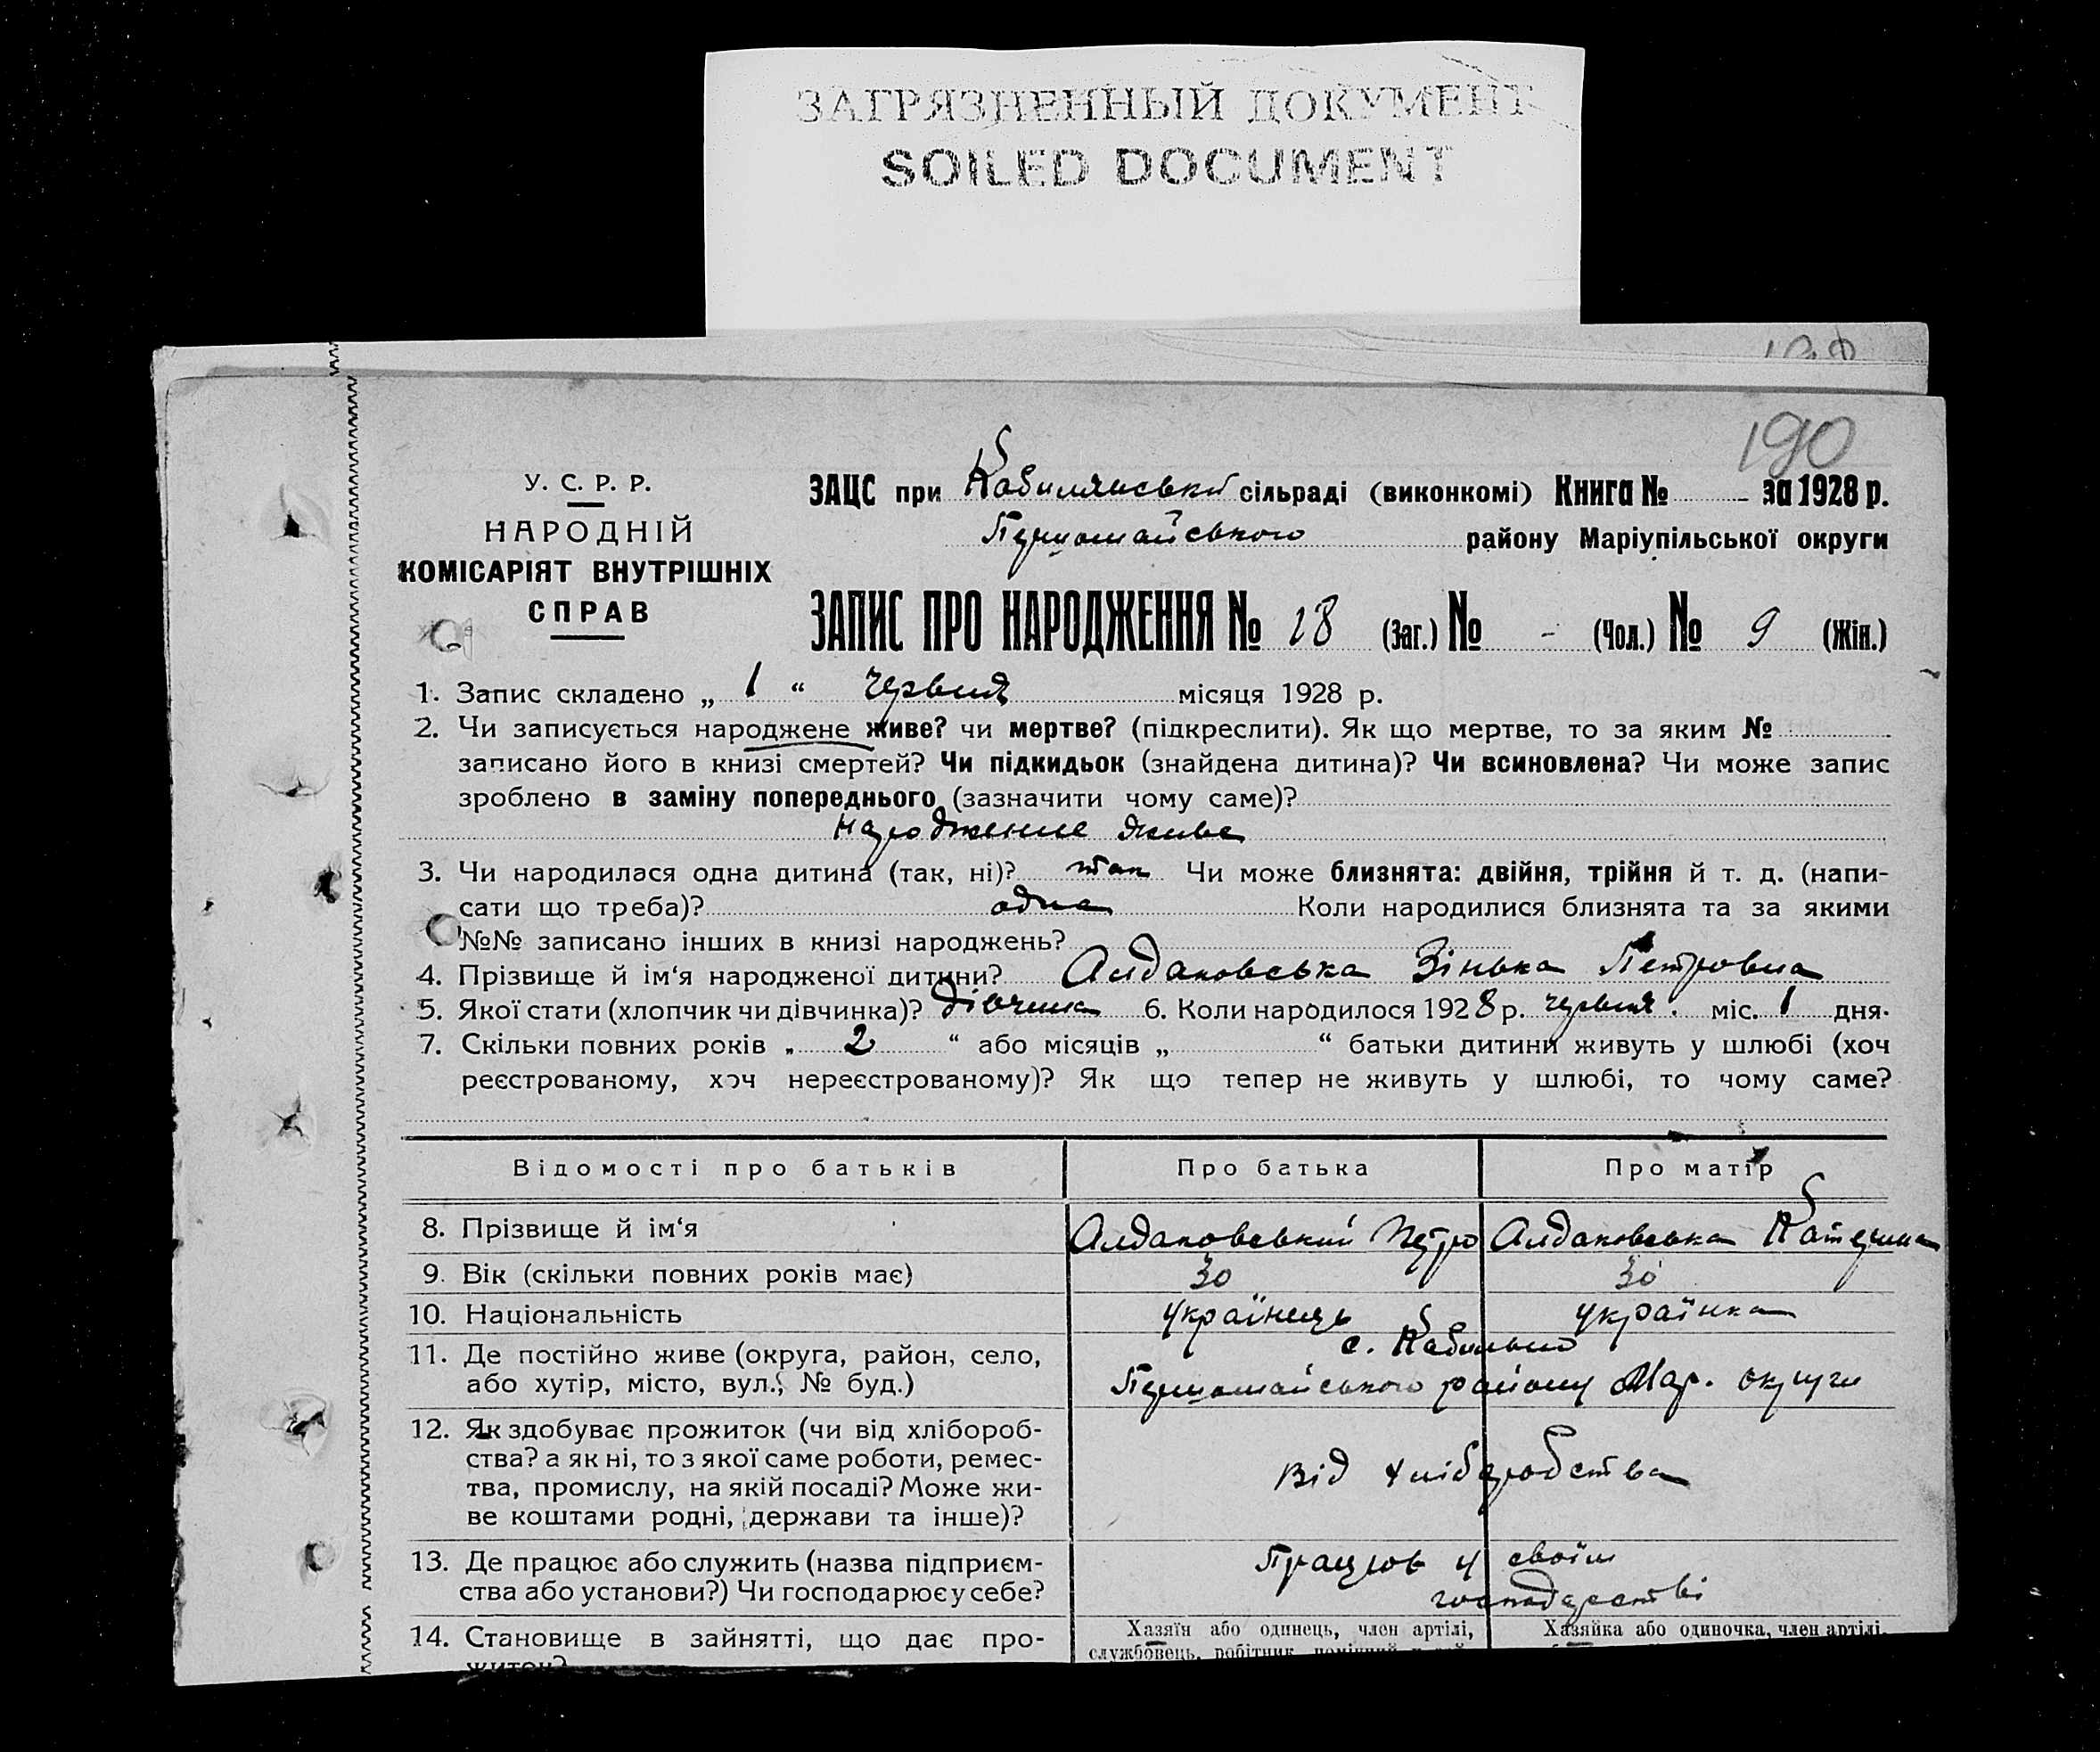 ЗАГРЯЗНЕННЫЙ ДОКУМЕНТ
SOILED DOCUMENT
190
У. С. Р. Р.
НАРОДНІЙ
КОМІСАРІЯТ ВНУТРІШНІХ
СПРАВ
ЗАЦС при Кобилянській сільраді (виконкомі) Книга № - за 1928 р.
Першомайського району Маріупільської округи
ЗАПИС ПРО НАРОДЖЕННЯ № 18 (Заг.) № - (Чол.) № 9 (Жін.)
1. Запис складено „ 1 “ червня місяця 1928 р.
2. Чи записується народжене живе? чи мертве? (підкреслити). Як що мертве, то за яким №
записано його в книзі смертей? Чи підкидьок (знайдена дитина)? Чи всиновлена? Чи може запис
зроблено в заміну попереднього (зазначити чому саме)?
народженне живе
3. Чи народилася одна дитина (так, ні)? так Чи може близнята: двійня, трійня й т. д. (напи-
сати що треба)? одна Коли народилися близнята та за якими
№№ записано інших в книзі народжень?
4. Прізвище й ім‘я народженої дитини? Алдаковська Зінька Петровна
5. Якої стати (хлопчик чи дівчинка)? дівчинка 6. Коли народилося 1928 р. червня. міс. 1 дня.
7. Скільки повних років „ 2 “ або місяців „ “ батьки дитини живуть у шлюбі (хоч
реєстрованому, хоч нереєстрованому)? Як що тепер не живуть у шлюбі, то чому саме?
Відомості про батьків Про батька Про матір
8. Прізвище й ім‘я Алдаковський Петро Алдаковська Катерина
9. Вік (скільки повних років має) 30 30
10. Національність українець українка
11. Де постійно живе (округа, район, село, с. Кобильно
або хутір, місто, вул., № буд.) Першомайського району Мар. округи
12. Як здобуває прожиток (чи від хлібороб-
ства? а як ні, то з якої саме роботи, ремес- від хліборобства
тва, промислу, на якій посаді? Може жи-
ве коштами родні, держави та інше)?
13. Де працює або служить (назва підприєм- Працюв у своїм
ства або установи?) Чи господарює у себе? господарстві
14. Становище в зайнятті, що дає про- Хазяїн або одинець, член артілі, Хазяйка або одиночка, член артілі,
житок? службовець, робітник,